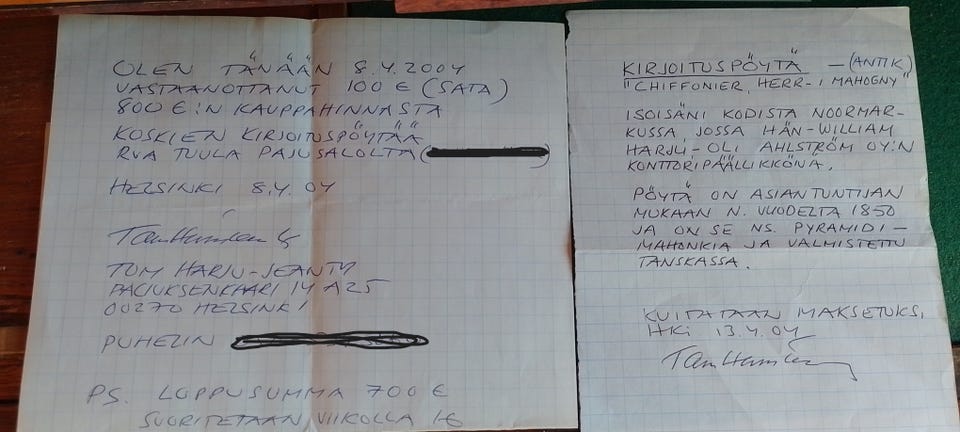 OLEN TÄNÄÄN 8.4.2004
VASTAANOTTANUT 100 € (SATA)
800 €:N KAUPPAHINNASTA
KOSKIEN KIRJOITUSPÖYTÄÄ
RVA TUULA PAJUSALOLTA (
HELSINKI 8.4.04
TOM HARJU-JEANTY
PAJUKSENKAARI 14 A 25
00270 HELSINKI
PUHELIN
PS. LOPPUSUMMA 700 €
SUORITETAAN VIIKOLLA 16
KIRJOITUSPÖYTÄ — (ANTIK)
"CHIFFONIER, HERR- I MAHOGNY"
ISOISÄNI KODISTA NOORMAR-
KUSSA, JOSSA HÄN - WILLIAM
HARJU - OLI AHLSTRÖM OY:N
KONTTORIPÄÄLLIKKÖNÄ.
PÖYTÄ ON ASIANTUNTIJAN
MUKAAN N. VUODELTA 1850
JA ON SE NS. PYRAMIDI-
MAHONKIA JA VALMISTETTU
TANSKASSA.
KUITATAAN MAKSETUKSI,
HKI 13.4.04